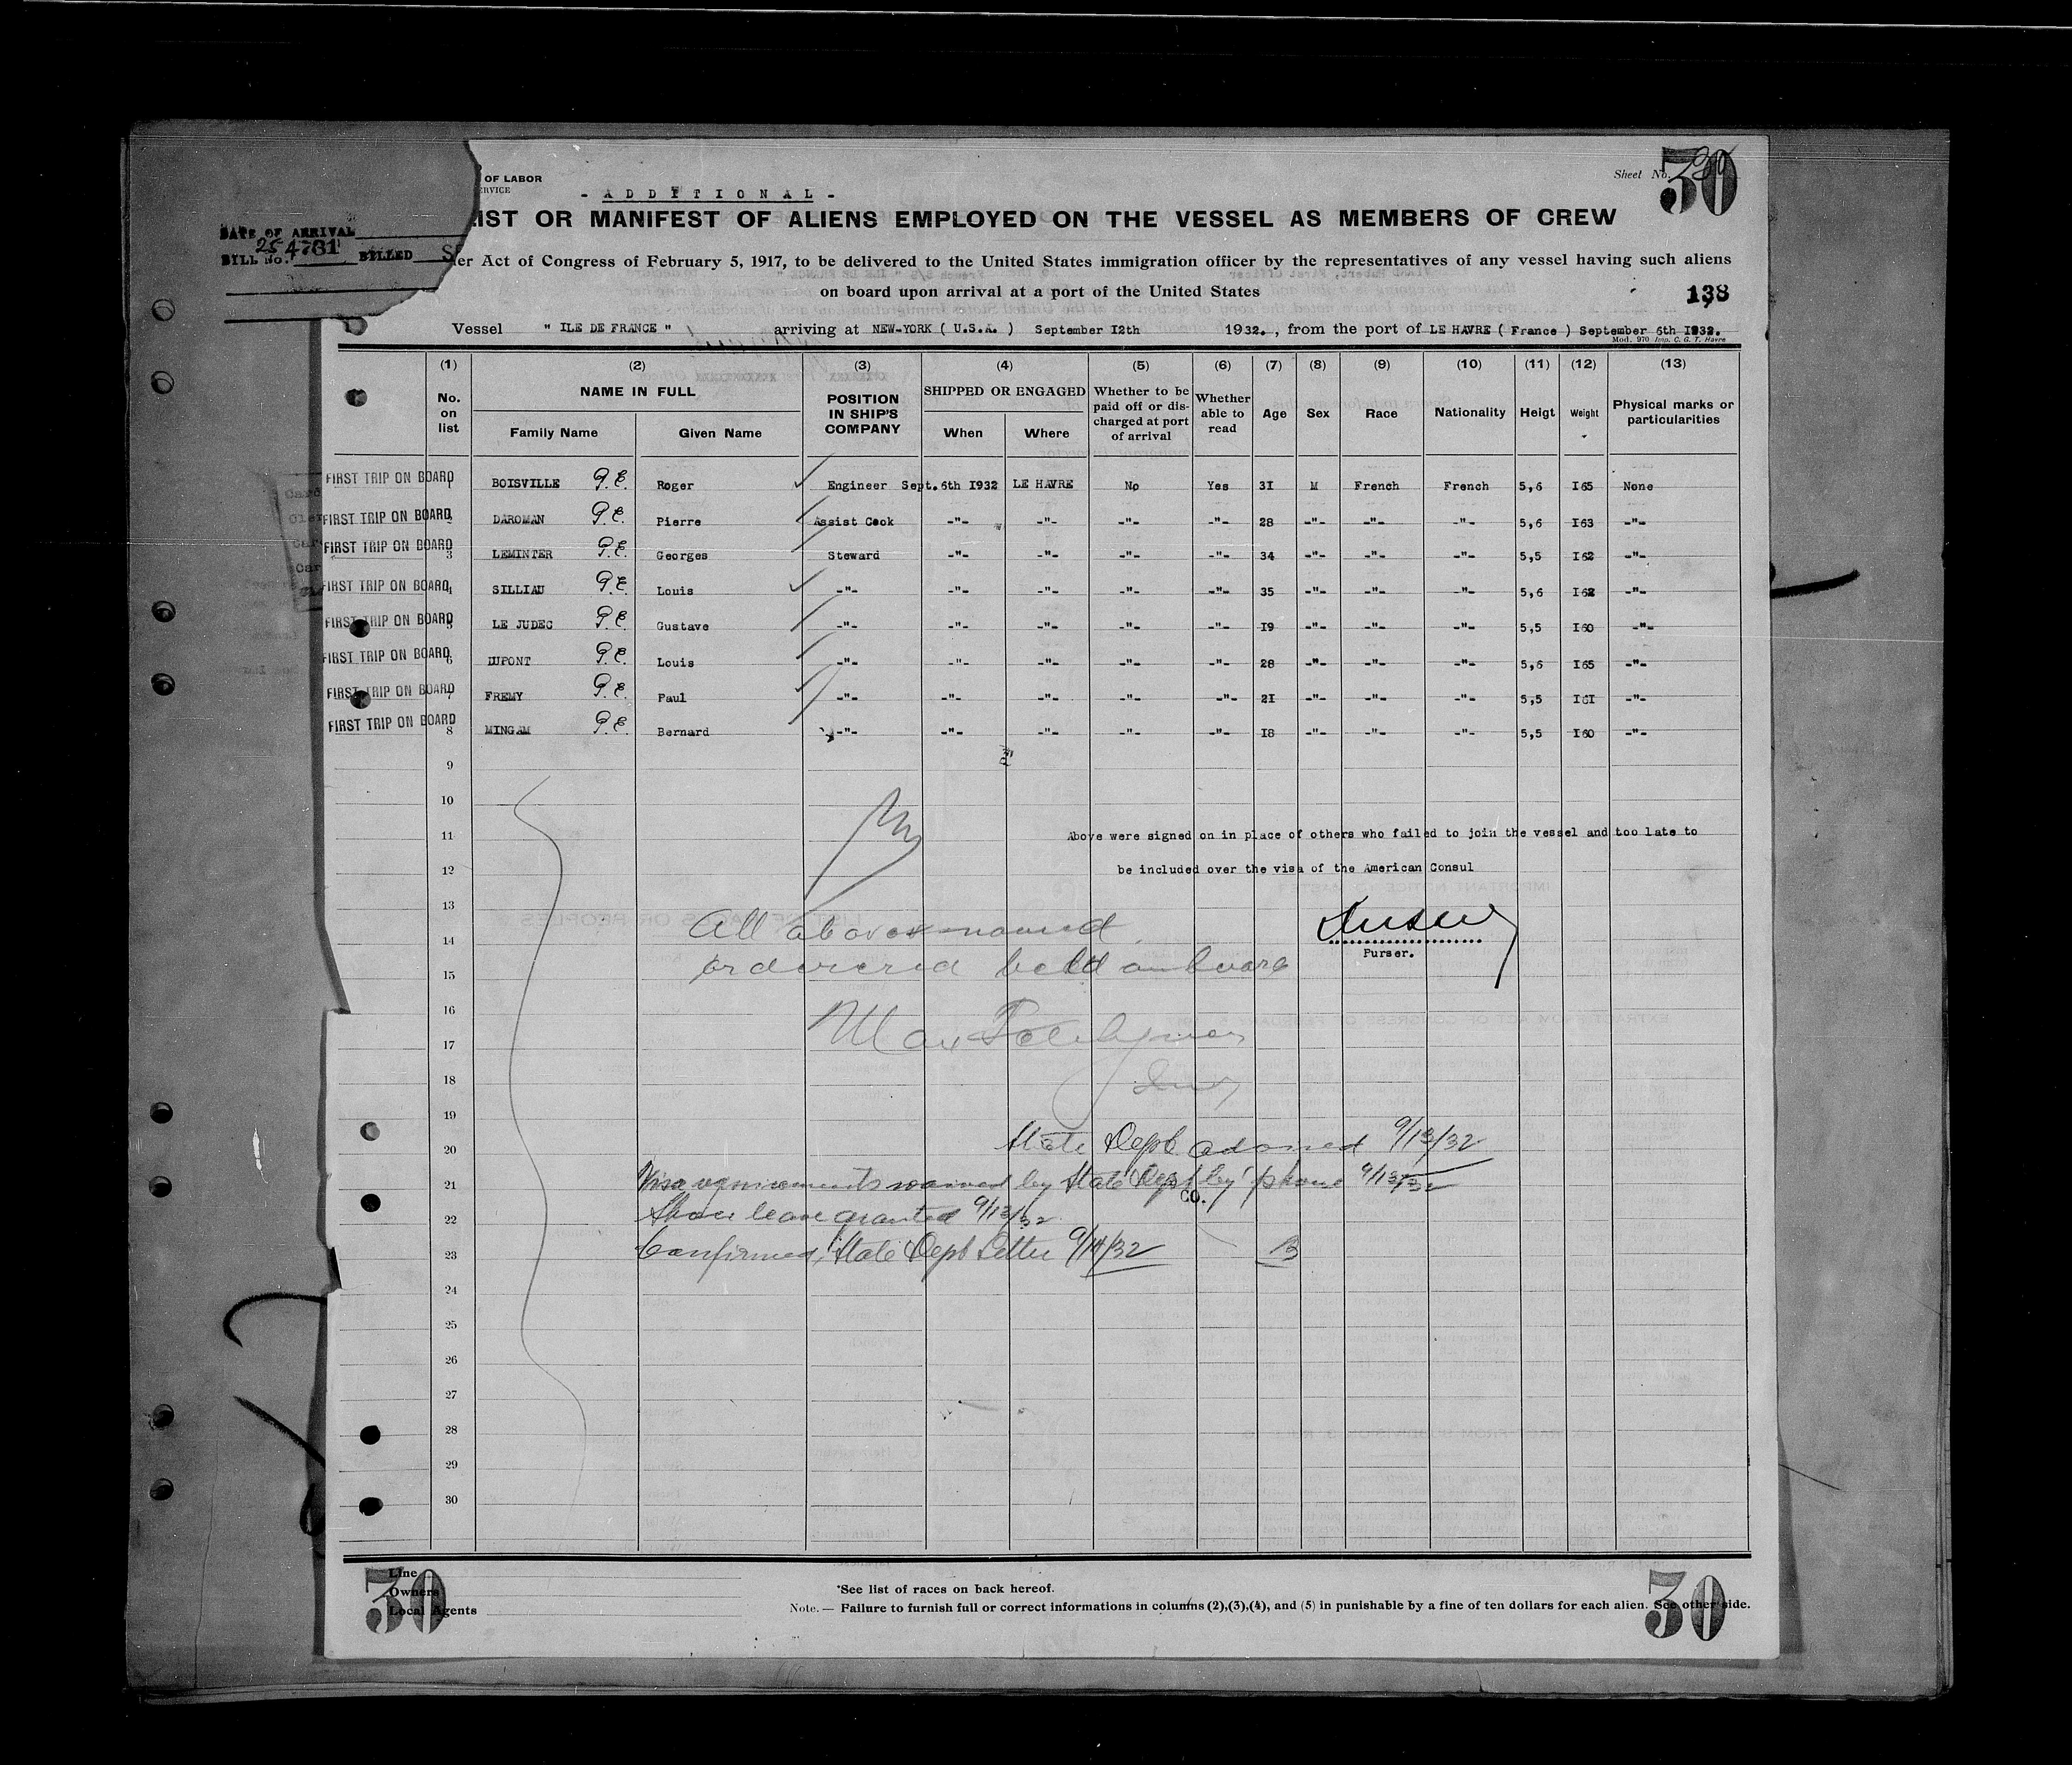 OF LABOR
ERVICE
- A D D I T I O N A L -
Sheet No. 30
30
IST OR MANIFEST OF ALIENS EMPLOYED ON THE VESSEL AS MEMBERS OF CREW
DATE OF ARRIVAL
BILL No. 254781 BILLED
er Act of Congress of February 5, 1917, to be delivered to the United States immigration officer by the representatives of any vessel having such aliens
on board upon arrival at a port of the United States
138
Vessel " ILE DE FRANCE " arriving at NEW-YORK ( U.S.A. ) September I2th 1932. , from the port of LE HAVRE ( France ) September 6th I932.
Mod. 970 Imp. C. G. T. Havre
(1) (2) (3) (4) (5) (6) (7) (8) (9) (10) (11) (12) (13)
No. on list NAME IN FULL Family Name Given Name POSITION IN SHIP'S COMPANY SHIPPED OR ENGAGED When Where Whether to be paid off or discharged at port of arrival Whether able to read Age Sex Race Nationality Heigt Weight Physical marks or particularities
FIRST TRIP ON BOARD 1 BOISVILLE P.E. Roger Engineer Sept. 6th I932 LE HAVRE No Yes 3I M French French 5,6 I65 None
FIRST TRIP ON BOARD 2 DAROMAN P.E. Pierre Assist Cook -"- -"- -"- -"- 28 -"- -"- -"- 5,6 I63 -"-
FIRST TRIP ON BOARD 3 LEMINTER P.E. Georges Steward -"- -"- -"- -"- 34 -"- -"- -"- 5,5 I62 -"-
FIRST TRIP ON BOARD 4 SILLIAU P.E. Louis -"- -"- -"- -"- -"- 35 -"- -"- -"- 5,6 I62 -"-
FIRST TRIP ON BOARD 5 LE JUDEC P.E. Gustave -"- -"- -"- -"- -"- I9 -"- -"- -"- 5,5 I60 -"-
FIRST TRIP ON BOARD 6 DUPONT P.E. Louis -"- -"- -"- -"- -"- 28 -"- -"- -"- 5,6 I65 -"-
FIRST TRIP ON BOARD 7 FREMY P.E. Paul -"- -"- -"- -"- -"- 2I -"- -"- -"- 5,5 I6I -"-
FIRST TRIP ON BOARD 8 MINGAM P.E. Bernard -"- -"- -"- -"- -"- I8 -"- -"- -"- 5,5 I60 -"-
9
10
11 Above were signed on in place of others who failed to join the vessel and too late to
12 be included over the visa of the American Consul
13
14 All above named
Purser.
15 ordered held on board
16
17 Max
18
19
20 State Dept. advised 9/13/32
21 Visa requirements waived by State Dept by phone 9/13/32
CO.
22 Shore leave granted 9/13/32
23 Confirmed, State Dept Letter 9/14/32
24
25
26
27
28
29
30
30 30
Line
Owners
Local Agents
*See list of races on back hereof.
Note. — Failure to furnish full or correct informations in columns (2),(3),(4), and (5) in punishable by a fine of ten dollars for each alien. See other side.